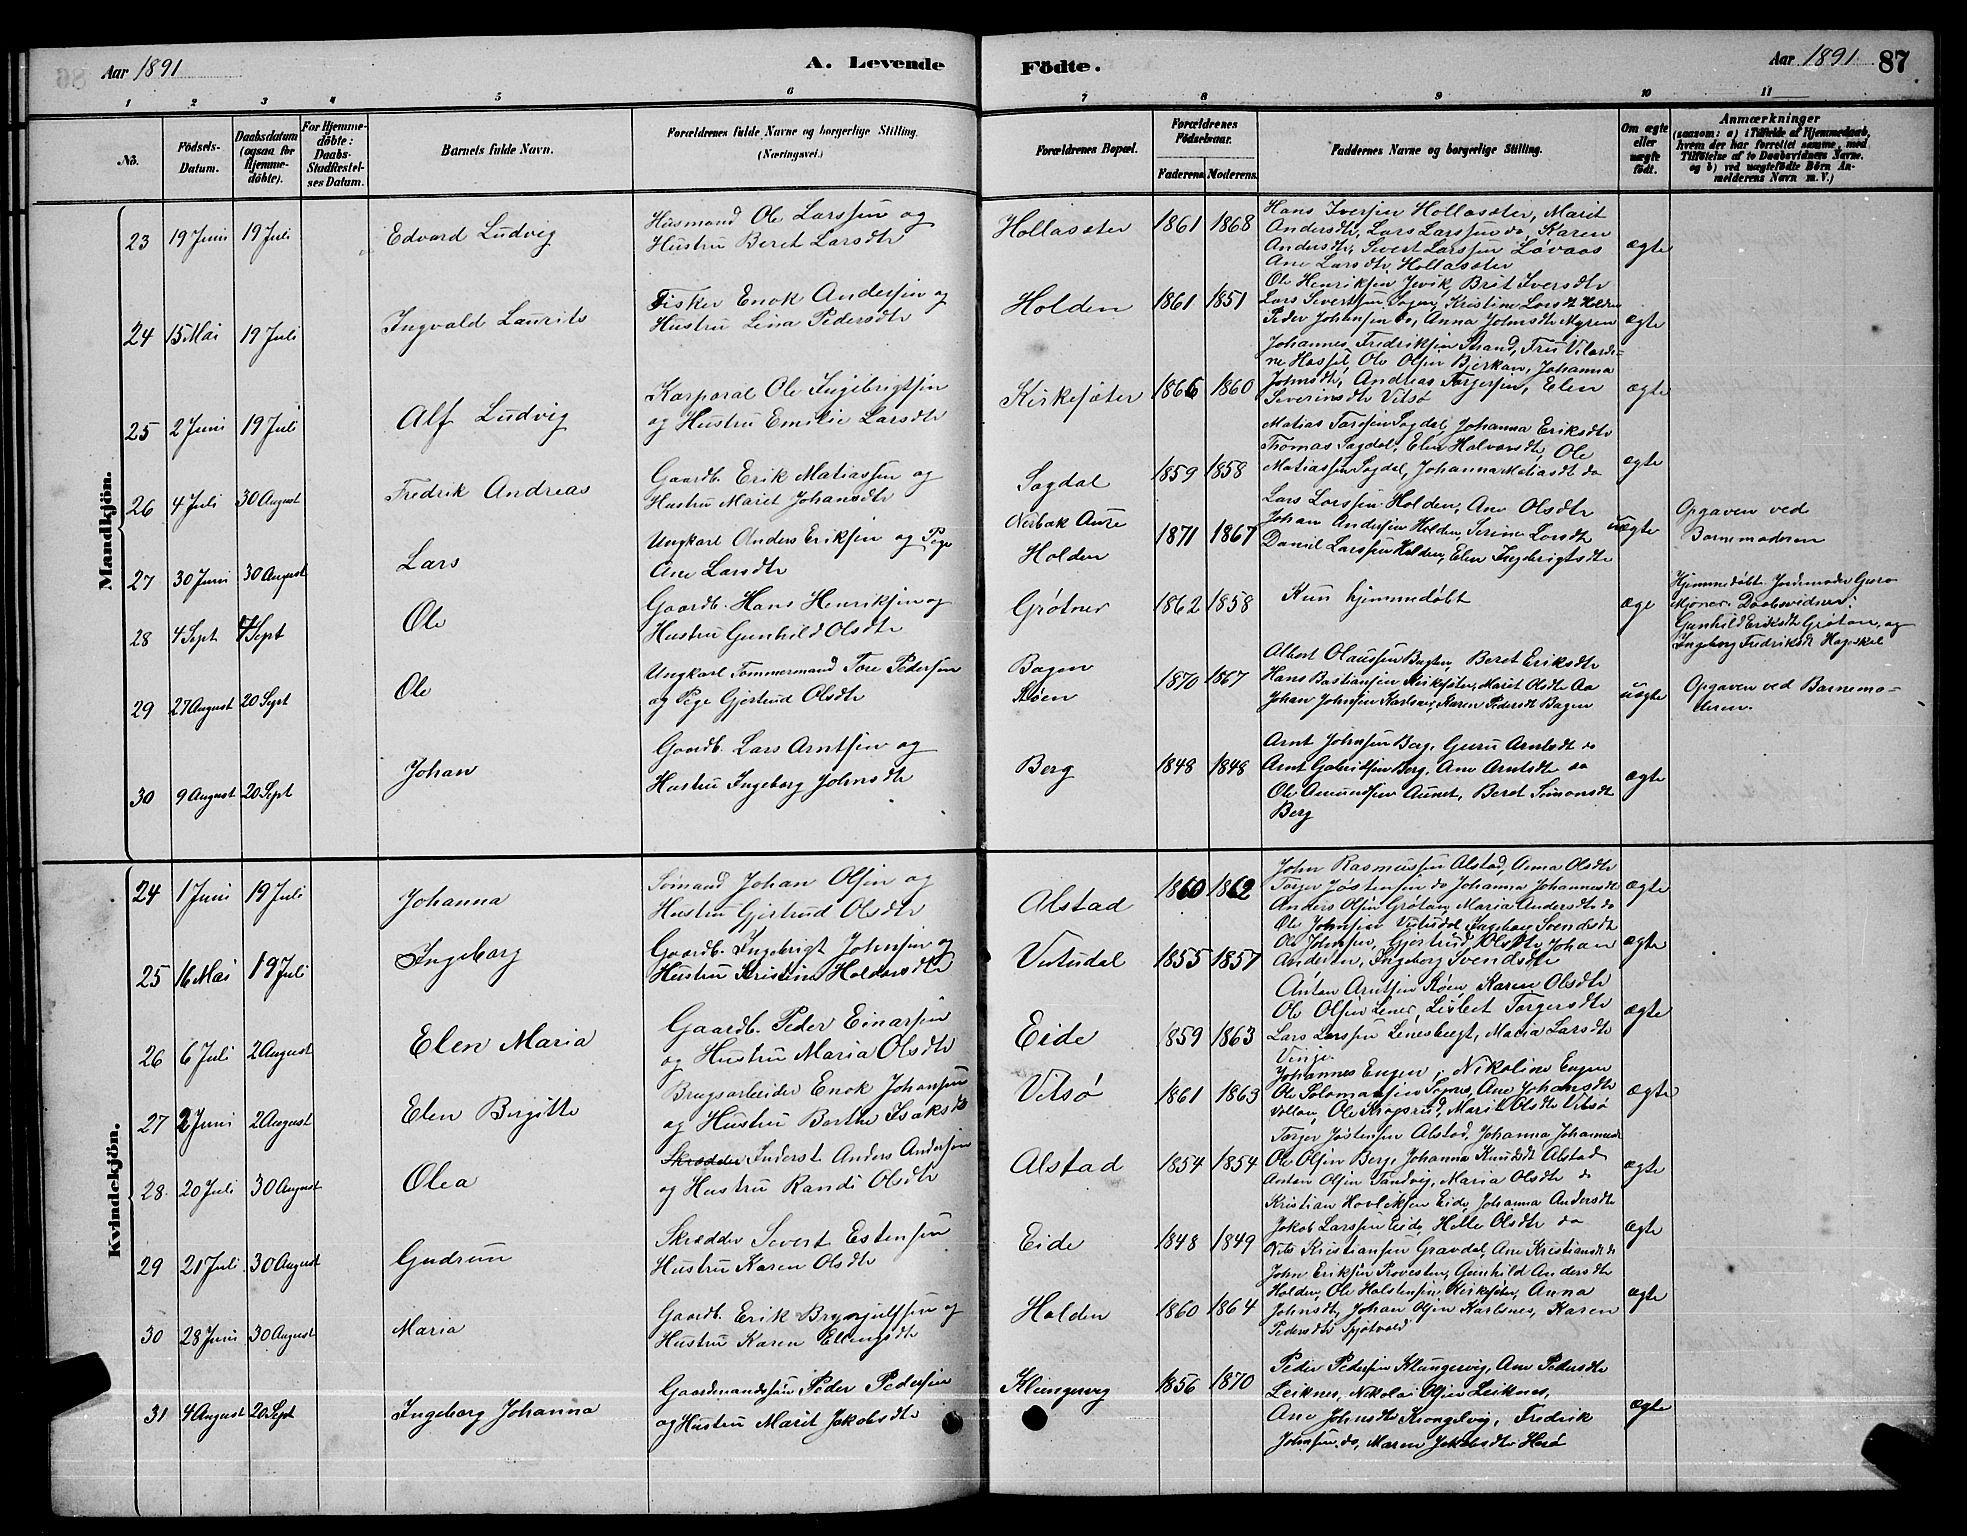 Aar 1891
A. Levende
Födte.
Aar 1891
87
1 2 3 4 5 6 7 8 9 10 11
No.
Födsels-
Datum.
Daabsdatum
(ogsaa for
Hjemme-
döbte).
For Hjemme-
döbte:
Daabs-
Stadfæstel-
ses Datum.
Barnets fulde Navn.
Forældrenes fulde Navne og borgerlige Stilling.
(Næringsvei.)
Forældrenes Bopæl.
Forældrenes
Födselsaar.
Faderens. Moderens.
Faddernes Navne og borgerlige Stilling.
Om ægte
eller
uægte
födt.
Anmærkninger
(saasom: a) i Tilfælde af Hjemmedaab,
hvem der har forrettet samme, med
Tilföielse af to Daabsvidners Navne.
og b) ved uægtefödte Börn An-
melderens Navn m. V.)
Mandkjön.
23 19 Juni 19 Juli Edvard Ludvig
Husmand Ole Larssen og
Hustru Beret Larsdtr
Hollasæter 1861 1868
Hans Iversen Hollasæter, Marit
Andersdtr, Lars Larssen do, Karen
Andersdtr, Sivert Larssen Løvaas
Ane Larsdtr Hollasæter
ægte
24 15 Mai 19 Juli Ingvald Laurits
Fisker Enok Andersen og
Hustru Lina Pedersdtr
Holden 1861 1851
Ole Henriksen Jevik, Brit Iversdtr
Lars Sivertsen Sognn, Kristine Larsdt Holden
Peder Johansen do, Anna Johnsdtr Myren
ægte
25 2 Juni 19 Juli Alf Ludvig
Korporal Ole Ingebrigtsen
og Hustru Emilie Larsdtr
Kirkesæter 1866 1860
Johannes Fredriksen Strand, Fru Vilardi-
ne Hassel, Ole Olsen Bjerkan, Johanna
Johnsdtr, Andreas Torgersen, Elen
Severinsdtr Vitsø
ægte
26 4 Juli 30 August Fredrik Andreas
Gaardb. Erik Matiassen og
Hustru Marit Johansdtr
Sagdal 1859 1858
Matias Sagdal, Johanna Eriksdtr
Thomas Sagdal, Elen Halvorsdtr, Ole
Matiassen Sagdal, Johanna Matiasdt do
ægte
27 30 Juni 30 August Lars
Ungkarl Anders Eriksen og Pige
Ane Larsdtr
Nerbak Aure
Holden 1871 1867
Lars Larssen Holden, Ane Olsdtr
Johan Andersen Holden, Serine Larsdtr
Daniel Larssen Holden, Elen Ingebrigtsdtr
uægte
Opgaven ved
Barnemoderen
28 4 Sept 4 Sept Ole
Gaardb. Hans Henriksen og
Hustru Gunhild Olsdtr
Grøtnes 1862 1858
Kun hjemmedøbt
æge
Hjemmedøbt. Jordemoder Guro
Mjønes. Daabsvidner:
Gunhild Eriksdt Grøtan, og
Ingeborg Fredriksdt
29 27 August 20 Sept Ole
Ungkarl Tømmermand Tore Pedersen
og Pige Gjertrud Olsdtr
Bagen
Støen 1870 1867
Albert Olaussen Bagen, Beret Eriksdtr
Hans Bastiansen Kirksæter, Marit Olsdt Aa
Johan Johnsen Karlsnes, Karen Pedersdt Bagen
uægte
Opgaven ved Barnemo-
deren.
30 9 August 20 Sept Johan
Gaardb. Lars Arntsen og
Hustru Ingeborg Johnsdtr
Berg 1848 1848
Arnt Johnsen Berg, Guru Arntsdt do
Arnt Gabrielsen Berg, Ane Arntsdtr do
Ole Amundsen Aunet, Beret Simonsdt
Berg
ægte
Kvindekjön.
24 1 Juni 19 Juli Johanna
Sömand Johan Olsen og
Hustru Gjertrud Olsdtr
Alstad 1860 1862
John Rasmussen Alstad, Anna Olsdtr
Torger Jøstensen do Johanna Johannesdt
Anders Olsen Grøtan, Maria Andersdtr do
ægte
25 16 Mai 19 Juli Ingeborg
Gaardb. Ingebrigt Johnsen og
Hustru Kristin Holdorsdtr
Vutudal 1855 1857
Ole Johnsen Vutudal, Ingeborg Svendsdtr
Ole Johnsen, Gjertrud Olsdtr, Johan
Andersen, Ingeborg Svendsdtr
ægte
26 6 Juli 2 August Elen Maria
Gaardb. Peder Einarsen
og Hustru Maria Olsdtr
Eide 1859 1863
Anton Arntsen Støen, Karen Olsdtr
Ole Olsen Lenes, Lisbet Torgersdtr
Lars Larssen Lenesbugt, Maria Larsdtr
Vinje.
ægte
27 2 Juni 2 August Elen Birgitte
Brugsarbeider Enok Johansen
og Hustru Berthe Isaksdt
Vitsø 1861 1863
Johannes Eugen, Nikoline Eugen
Ole Solomansen Sognn, Ane Johansdtr
Vollan, Ole Krogsrud, Marit Olsdtr Vitsø
ægte
28 20 Juli 30 August Olea
Skrædder Inderst Anders Andersen
og Hustru Randi Olsdtr
Alstad 1854 1854
Torger Jøstensen Alstad, Johanna Johannesdt
Ole Olsen Berg, Johanna Knudsdt Alstad
Anton Olsen Sandvig, Maria Olsdtr do
ægte
29 21 Juli 30 August Gudrun
Skrædder Sivert Estensen
Hustru Karen Olsdtr
Eide 1848 1849
Kristian Eide, Johanna Andersdtr
Jakob Larssen Eide, Helle Olsdtr do
Nils Kristiansen Gravdal, Ane Kristiansdt do
ægte
30 28 Juni 30 August Maria
Gaardb. Erik Brynjulfsen og
Hustru Karen Ellensdtr
Holden 1860 1864
John Eriksen Provesten, Gunhild Andersdtr
Holden, Ole Holstensen Kirkesæter, Anna
Johnsdt, Johan Olsen Karlsnes, Karen
Pedersdtr Spjøtvold
ægte
31 4 August 20 Sept Ingeborg Johanna
Gaardmandssøn Peder Pedersen
og Hustru Marit Jakobsdtr
Klungervig 1856 1870
Peder Pedersen Klungervig, Ane Pedersdtr
Leiknes, Nikolai Olsen Leiknes,
Ane Johnsdtr Krongelvig, Fredrik
Johnsen do, Maren Jakobsdtr Hesø
ægte